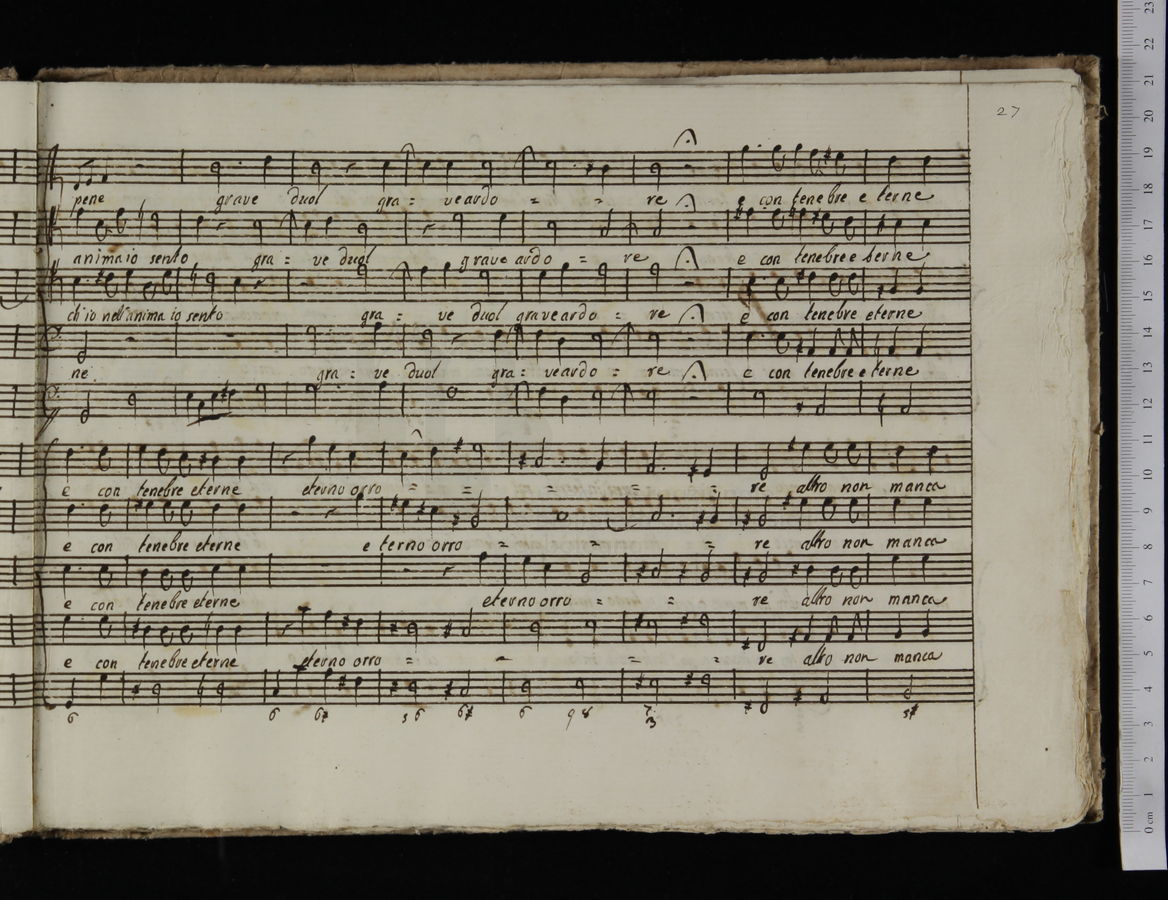 27
pene grave duol gra = ve ardo = = re e con tenebre e terne
anima io sento gra = ve duol grave ardo = re e con tenebre e terne
ch'io nell'anima io sento gra = ve duol grave ardo = re e con tenebre eterne
ne gra = ve duol gra = ve ardo = re e con tenebre e terne
e con tenebre eterne eterno orro = = = = = re altro non manca
e con tenebre eterne e terno orro = = = re altro non manca
e con tenebre eterne eterno orro = = re altro non manca
e con tenebre eterne eterno orro = = = = re altro non manca
6 6 6# 5 6 6# 6 9 8 7 3 3#